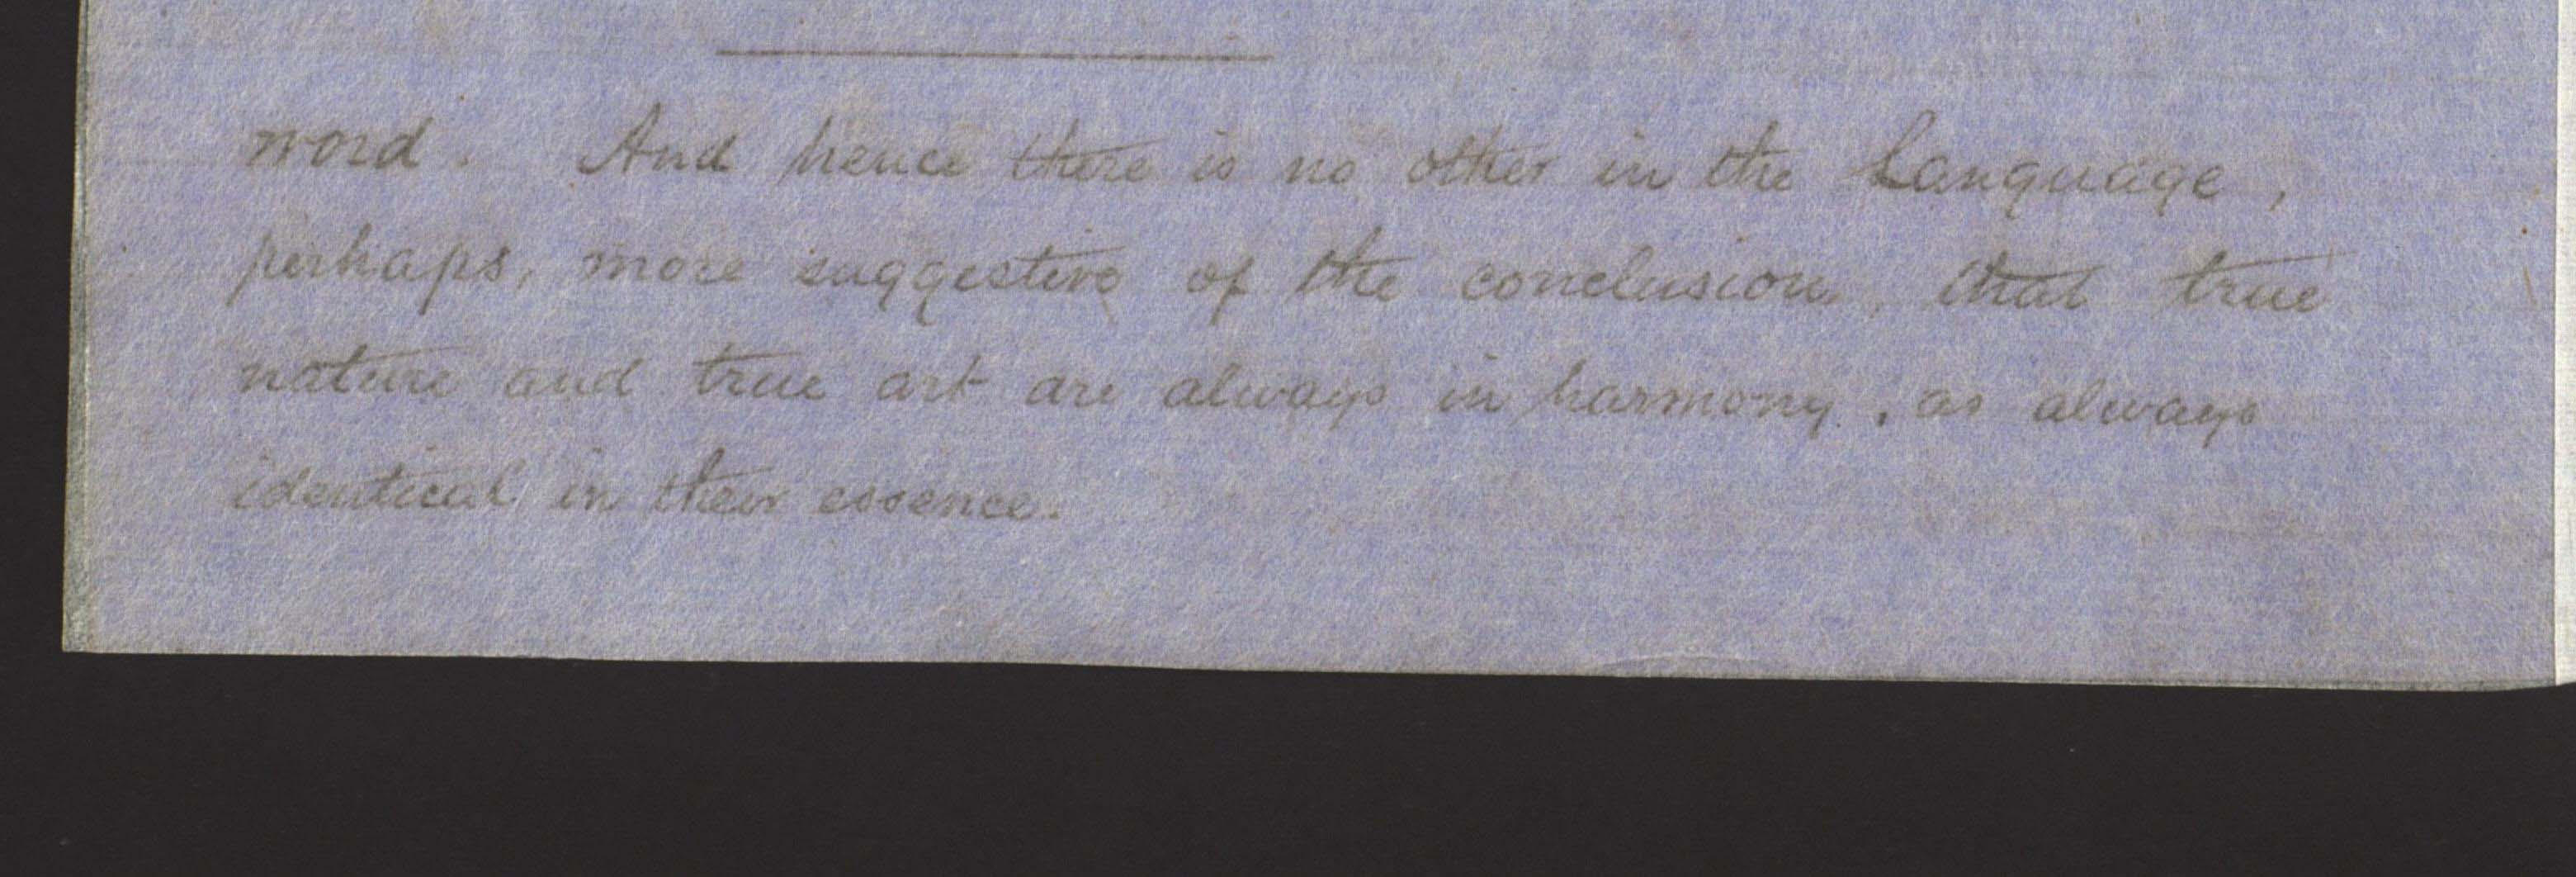 word. And hence there is no other in the Language,
perhaps, more suggestive of the conclusion, that true
nature and true art are always in harmony, as always
identical in their essence.